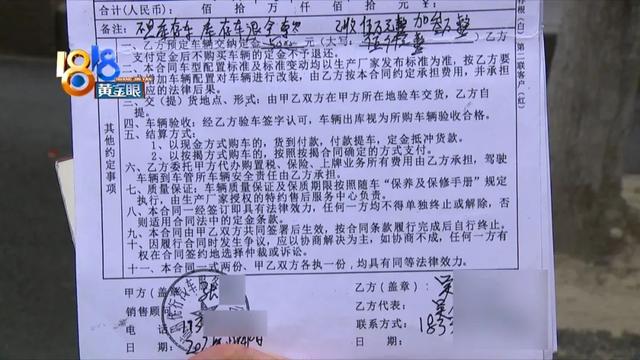 合计(人民币): 佰 拾 万 仟 佰 拾 元
备注:
二、乙方预定车辆交纳定金 元(大写:
支付定金后不购买车辆的定金不予退还。
三、本合同车型配置标准及标准变动均以生产厂家发布标准为准,按乙方要
加车辆配置对车辆进行改装,由乙方按本合同约定承担费用,并承担
应的法律后果。
三、交(提)货地点、形式:由甲乙双方在甲方所在地验车交货,乙方自
提。
四、车辆验收:经乙方验车签字认可,车辆出库视为所购车辆验收合格。
五、结算方式:
1、以现金方式购车的,货到付款,付款提车,定金抵冲货款。
2、以按揭方式购车的,按照按揭合同确定的方式支付。
六、乙方委托甲方代办购置税、保险、上牌业务所有费用由乙方承担,驾驶
车辆到车管所车辆安全责任由乙方承担。
七、质量保证:车辆质量保证及保质期限按照随车“保养及保修手册”规定
执行,由生产厂家授权的特约售后服务中心负责。
八、本合同一经签订即具有法律效力,任何一方均不得单独终止或解除,否
则适用合同法中的定金条款。
九、本合同由甲乙双方共同签署后生效,按合同条款履行完成后自行终止。
十、因履行合同时发生争议,应以协商解决为主,如协商不成,任何一方有
权在合同签约地选择仲裁或诉讼。
十一、本合同一式两份、甲乙双方各执一份,均具有同等法律效力。
其他约定事项
第二联客户(红)
甲方(盖章
销售顾问
电话
日期:
乙方(盖章):
乙方代表:
联系方式:183
日期:
1818
黄金眼